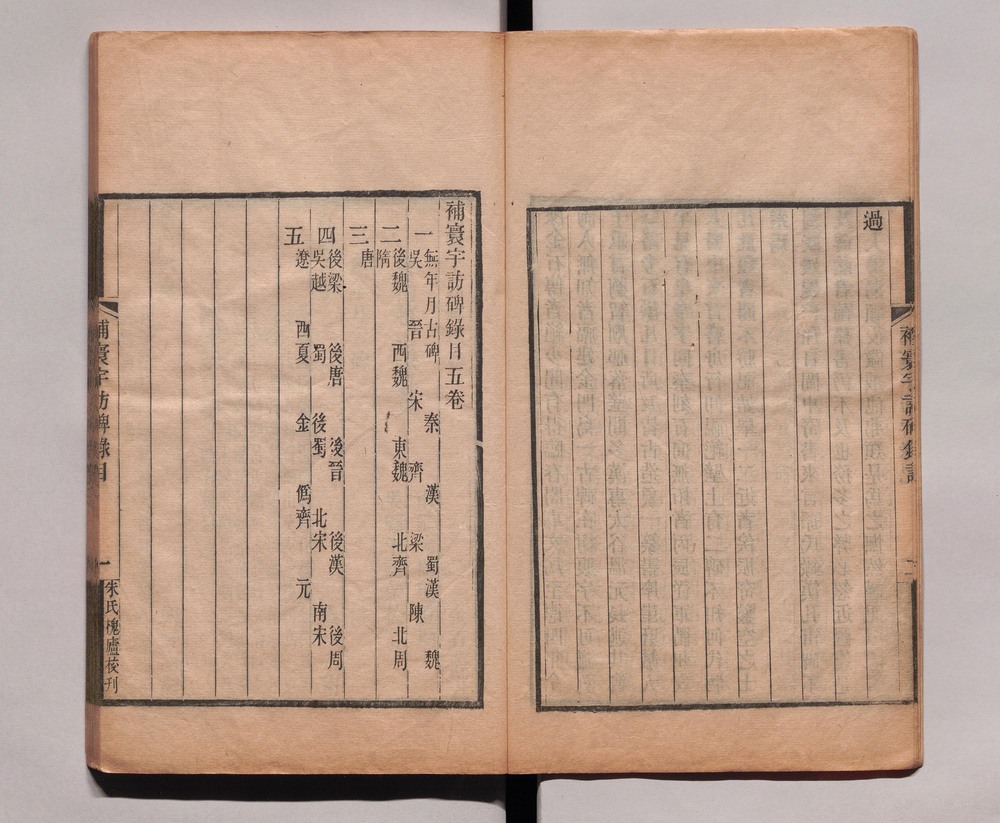 過
補寰宇訪碑錄記
二
補寰宇訪碑錄目五卷
一
無年月古碑 秦 漢 蜀漢 魏
吳 晉 宋 齊 梁 陳
二
後魏 西魏 東魏 北齊 北周
隋
三
唐
四
後梁 後唐 後晉 後漢 後周
吳越 蜀 後蜀 北宋 南宋
五
遼 西夏 金 僞齊 元
補寰宇訪碑錄目
一
朱氏槐廬校刊